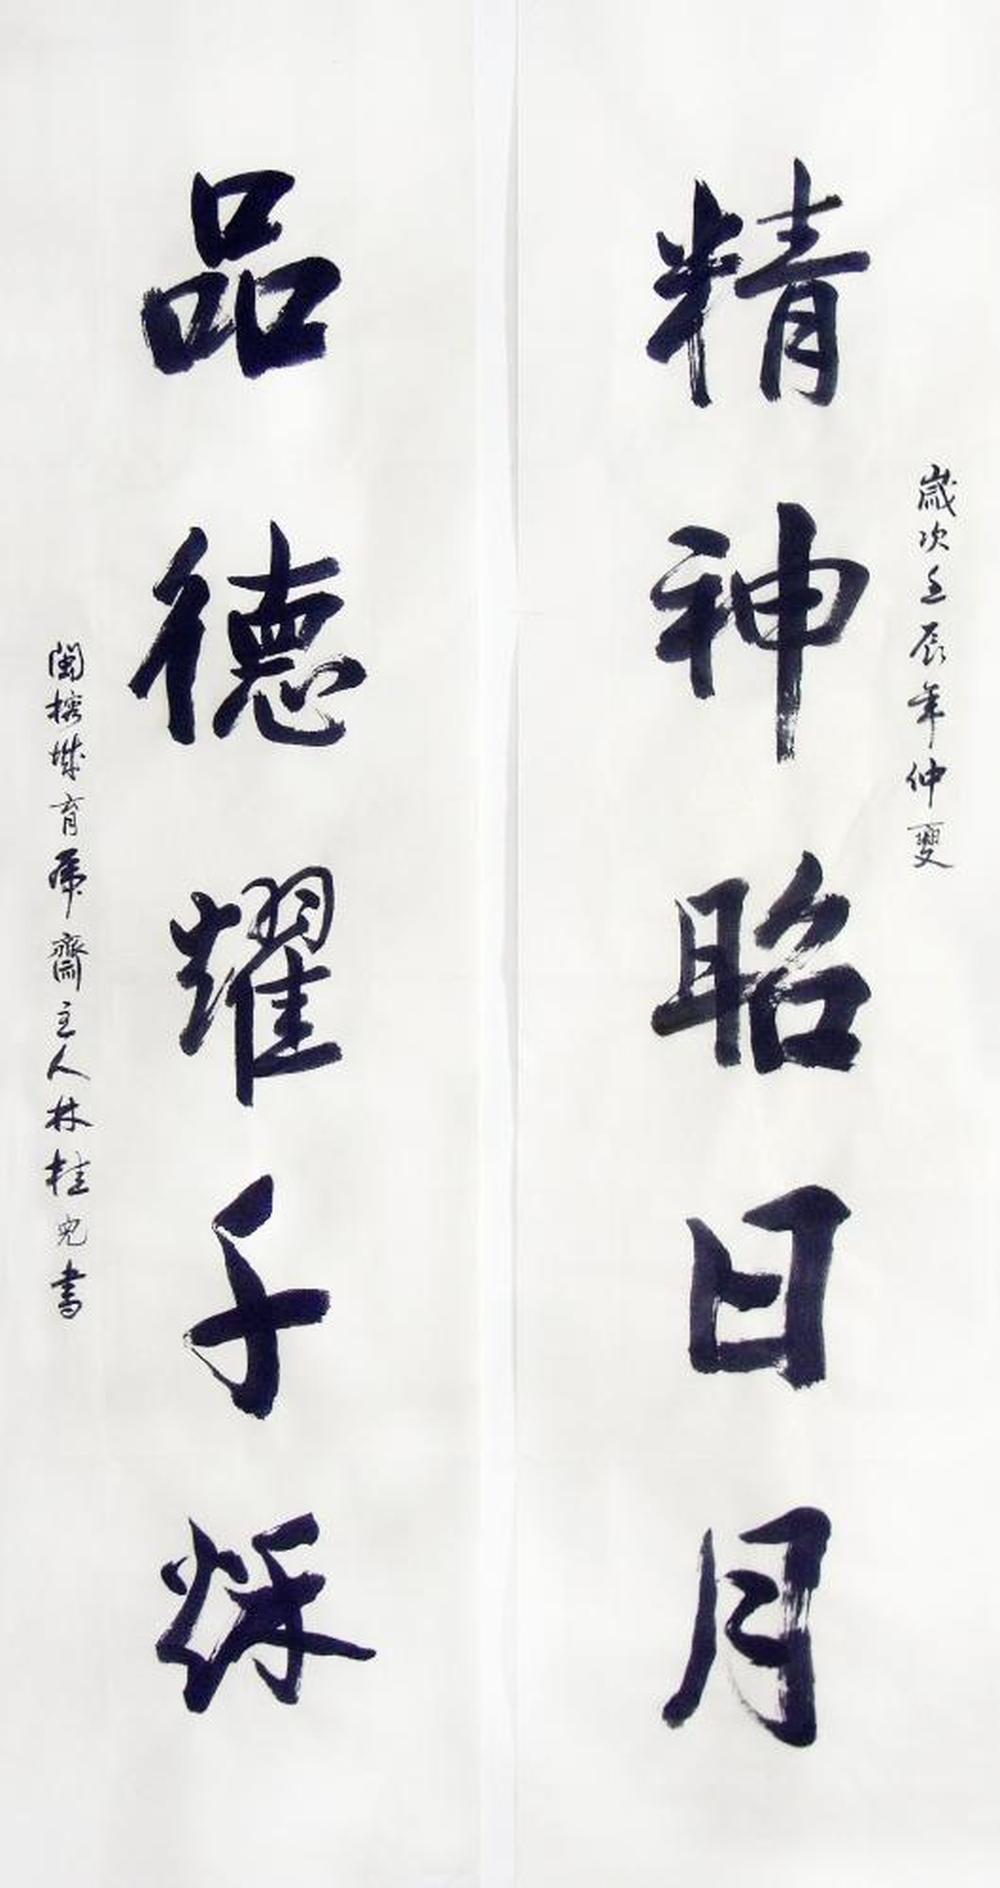 歲次壬辰年仲夏
精神昭日月
品德耀千秌
閩榕城育席齋主人林桂光書